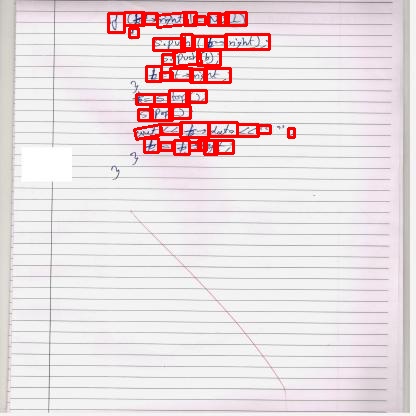 if (t->right != NULL)
{
s.push(t->right);
s.push(t);
t = t->right;
}
t = s.top();
s.pop();
cout << t->data << " ";
t = t->right;
}
}